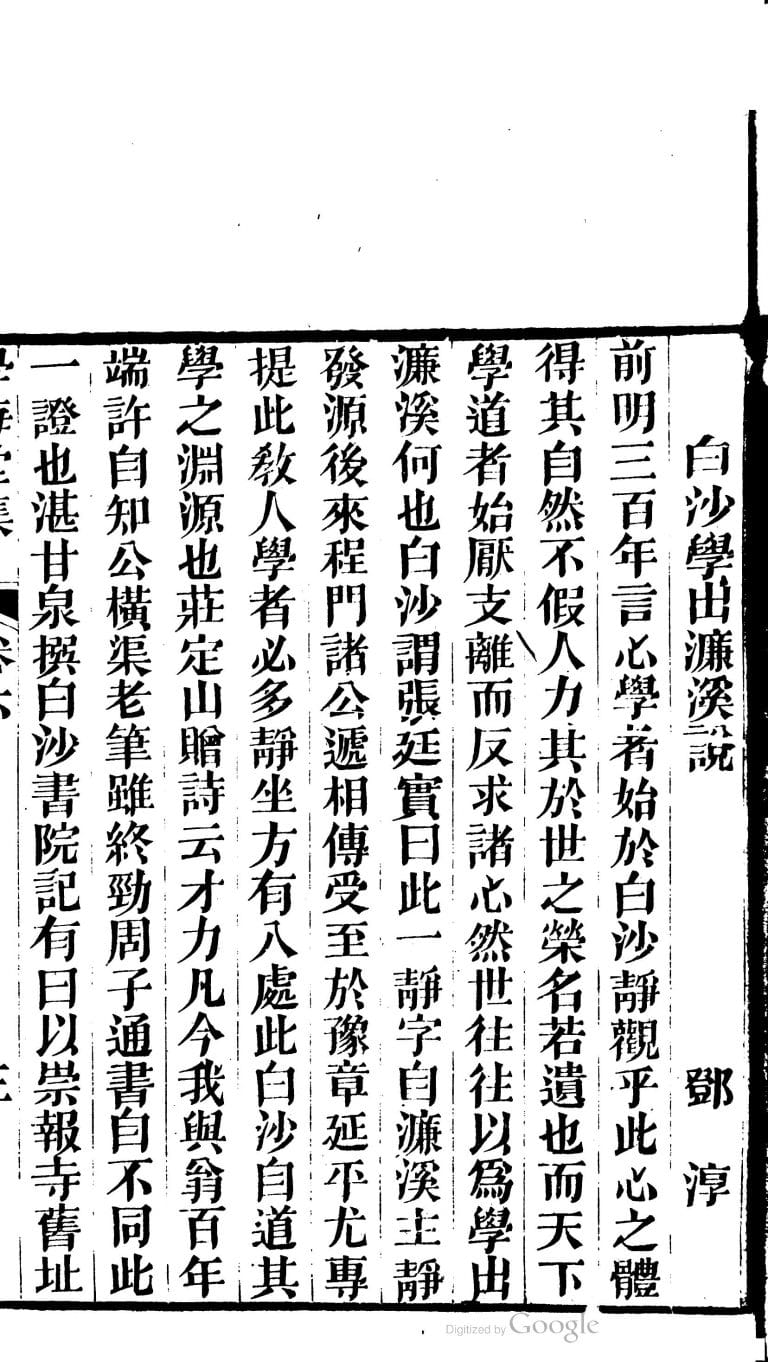 白沙學出濂溪說　鄧淳
前明三百年言心學者始於白沙靜觀乎此心之體
得其自然不假人力其於世之榮名若遺也而天下
學道者始厭支離而反求諸心然世往往以爲學出
濂溪何也白沙謂張廷實曰此一靜字自濂溪主靜
發源後來程門諸公遞相傳受至於豫章延平尤專
提此敎人學者必多靜坐方有入處此白沙自道其
學之淵源也莊定山贈詩云才力凡今我與翁百年
端許自知公橫渠老筆雖終勁周子通書自不同此
一證也湛甘泉撰白沙書院記有曰以崇報寺舊址
Digitized by Google